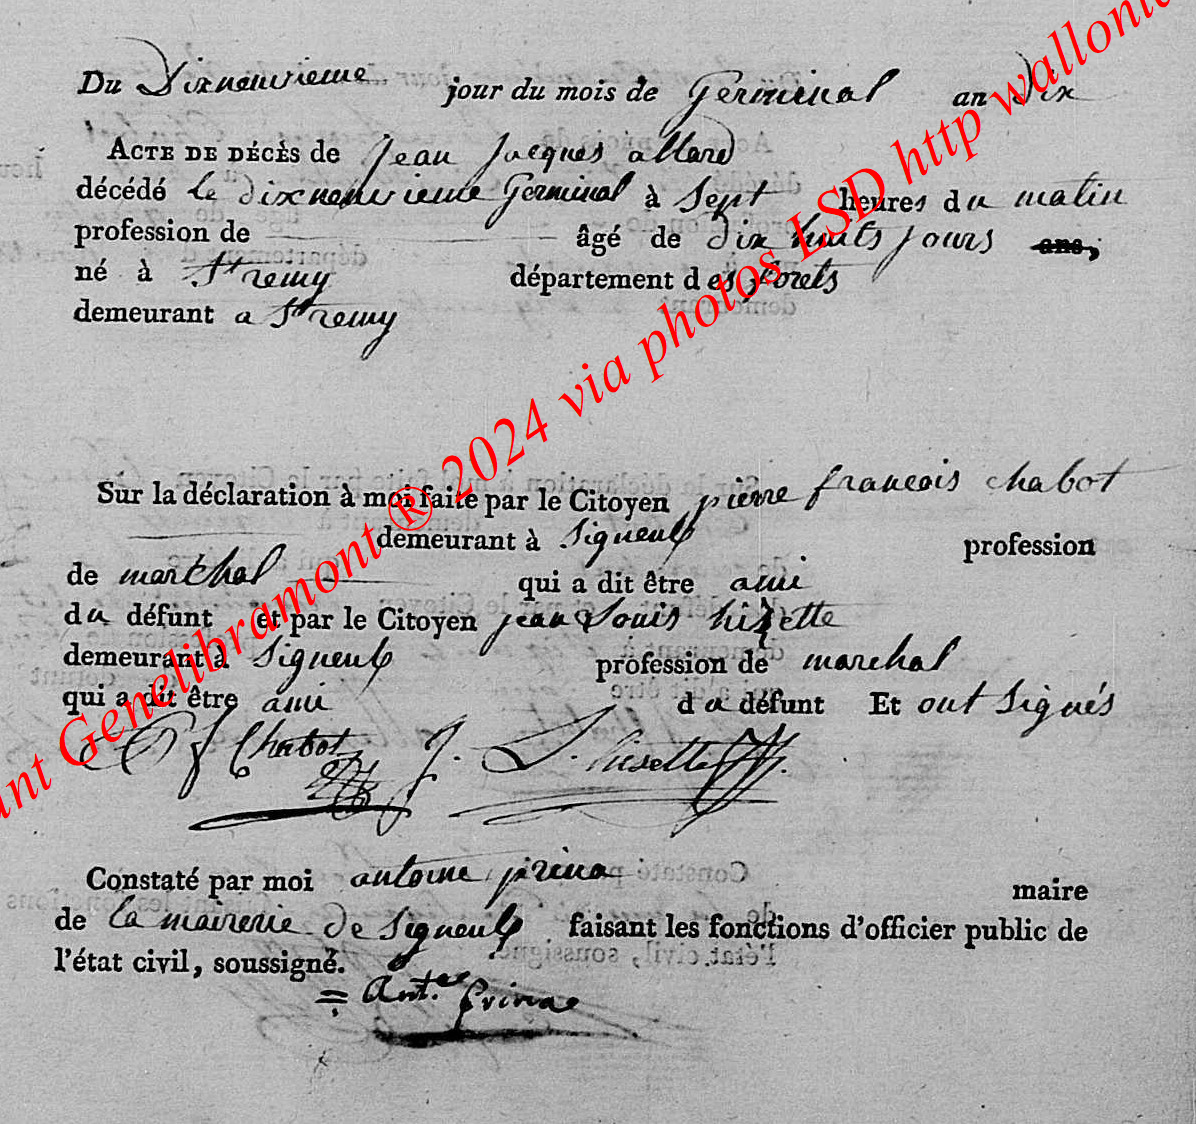 Du Dixneuvieme jour du mois de Germinal an dix
ACTE DE DÉCÈS de Jean Jacques allard
décédé le dixneuvieme Germinal à sept heures du matin
profession de âgé de dix huits jours ans,
né à St remy département des forets
demeurant a St remy
Sur la déclaration à moi faite par le Citoyen pierre francois chabot
demeurant à Signeulx profession
de marchal qui a dit être ami
du défunt et par le Citoyen jean Louis hizette
demeurant à Signeulx profession de marchal
qui a dit être ami du défunt Et ont signés
P f Chabot J. L. hisette
Constaté par moi antoine pirena maire
de la mairerie de Signeulx faisant les fonctions d'officier public de
l'état civil, soussigné.
= Ant.
ant Genelibramont ® 2024 via photos LSD http wallonie